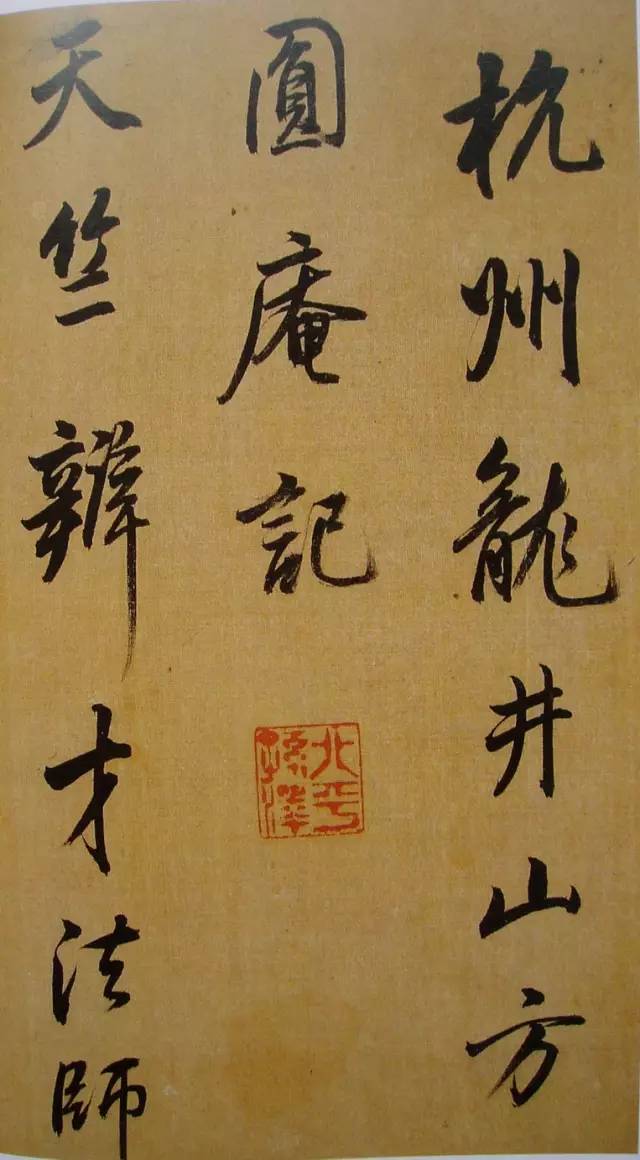 杭州龍井山方
圓庵記
天竺辯才法師
北平
孫澤